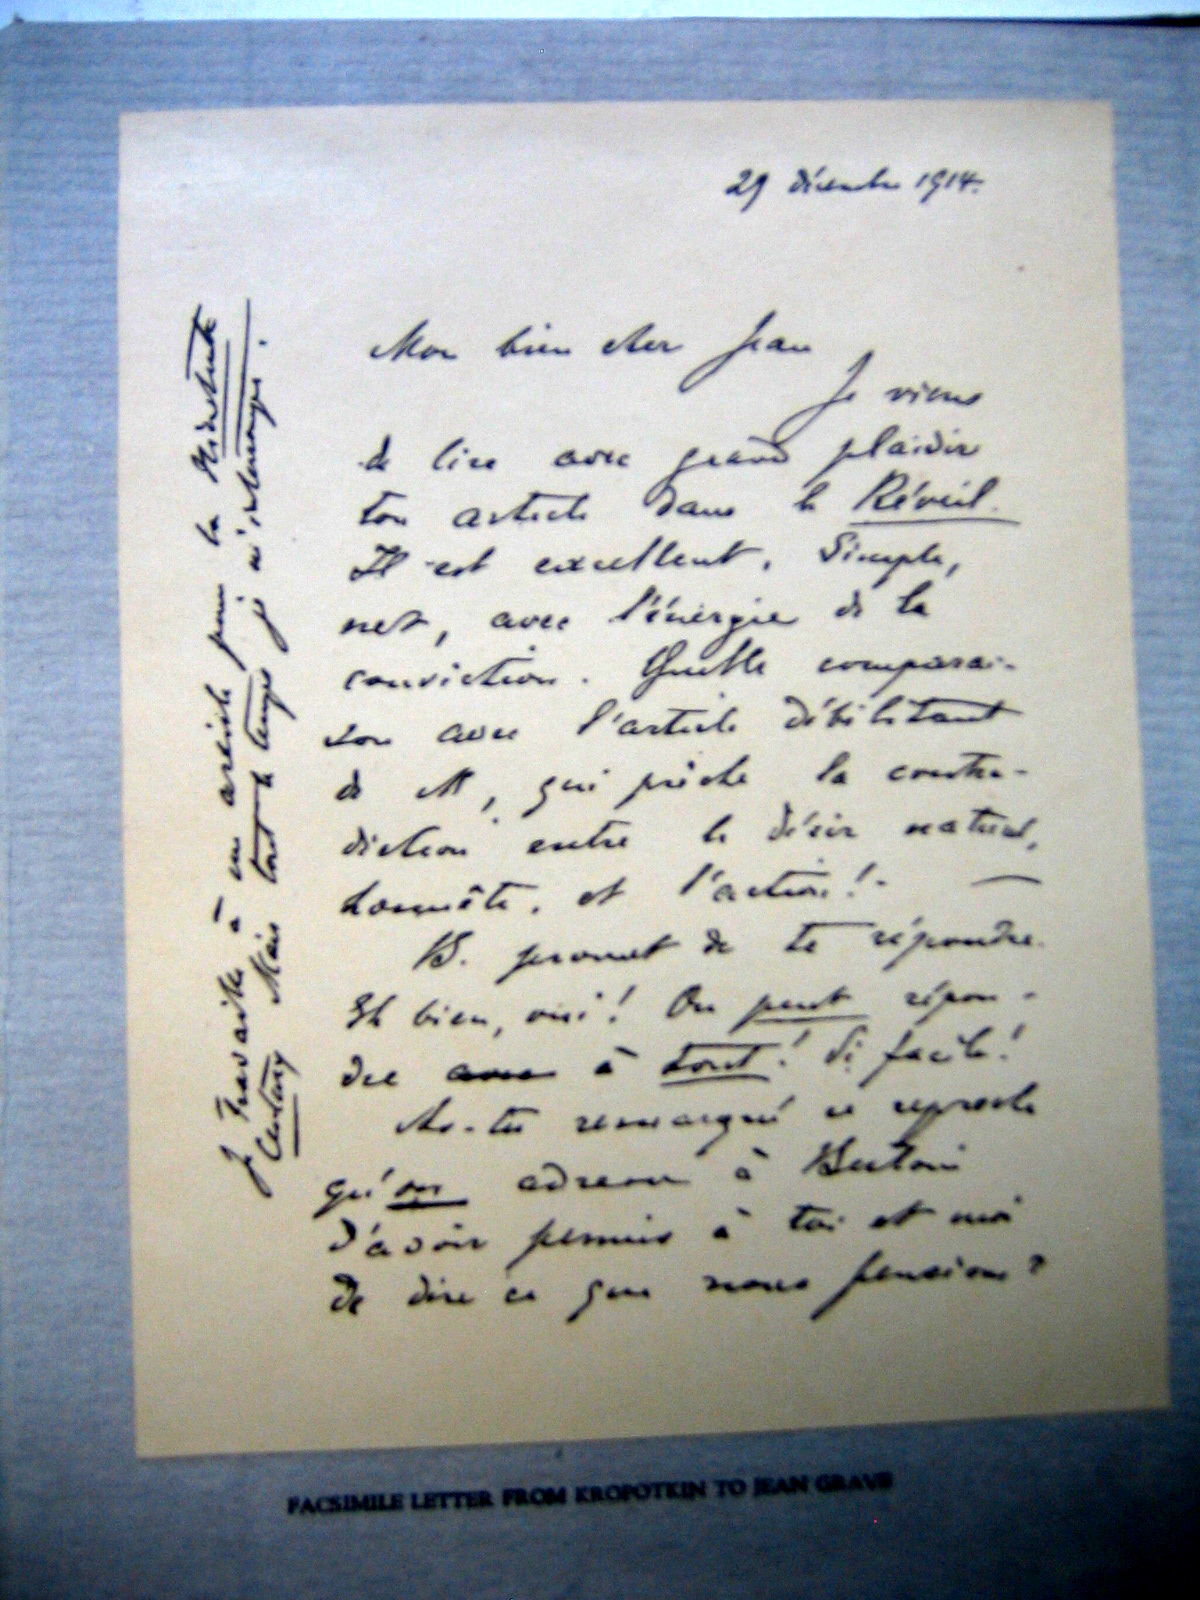 29 décembre 1914.
Mon bien cher Jean
Je viens
de lire avec grand plaisir
ton article dans le Réveil.
Il est excellent. Simple,
net, avec l'énergie de la
conviction. Quelle comparai-
son avec l'article débilitant
de M, qui prêche la contra-
diction entre le désir naturel,
honnête, et l'action! —
B. promet de te répondre.
Eh bien, oui! On peut répon-
dre avec à tout! Si facile!
As-tu remarqué ce reproche
qu'on adresse à Bertoni
d'avoir permis à toi et moi
de dire ce que nous pensions?
Je travaille à un article pour la
Century Mais tout le temps je m'interromps.
FACSIMILE LETTER FROM KROPOTKIN TO JEAN GRAVE